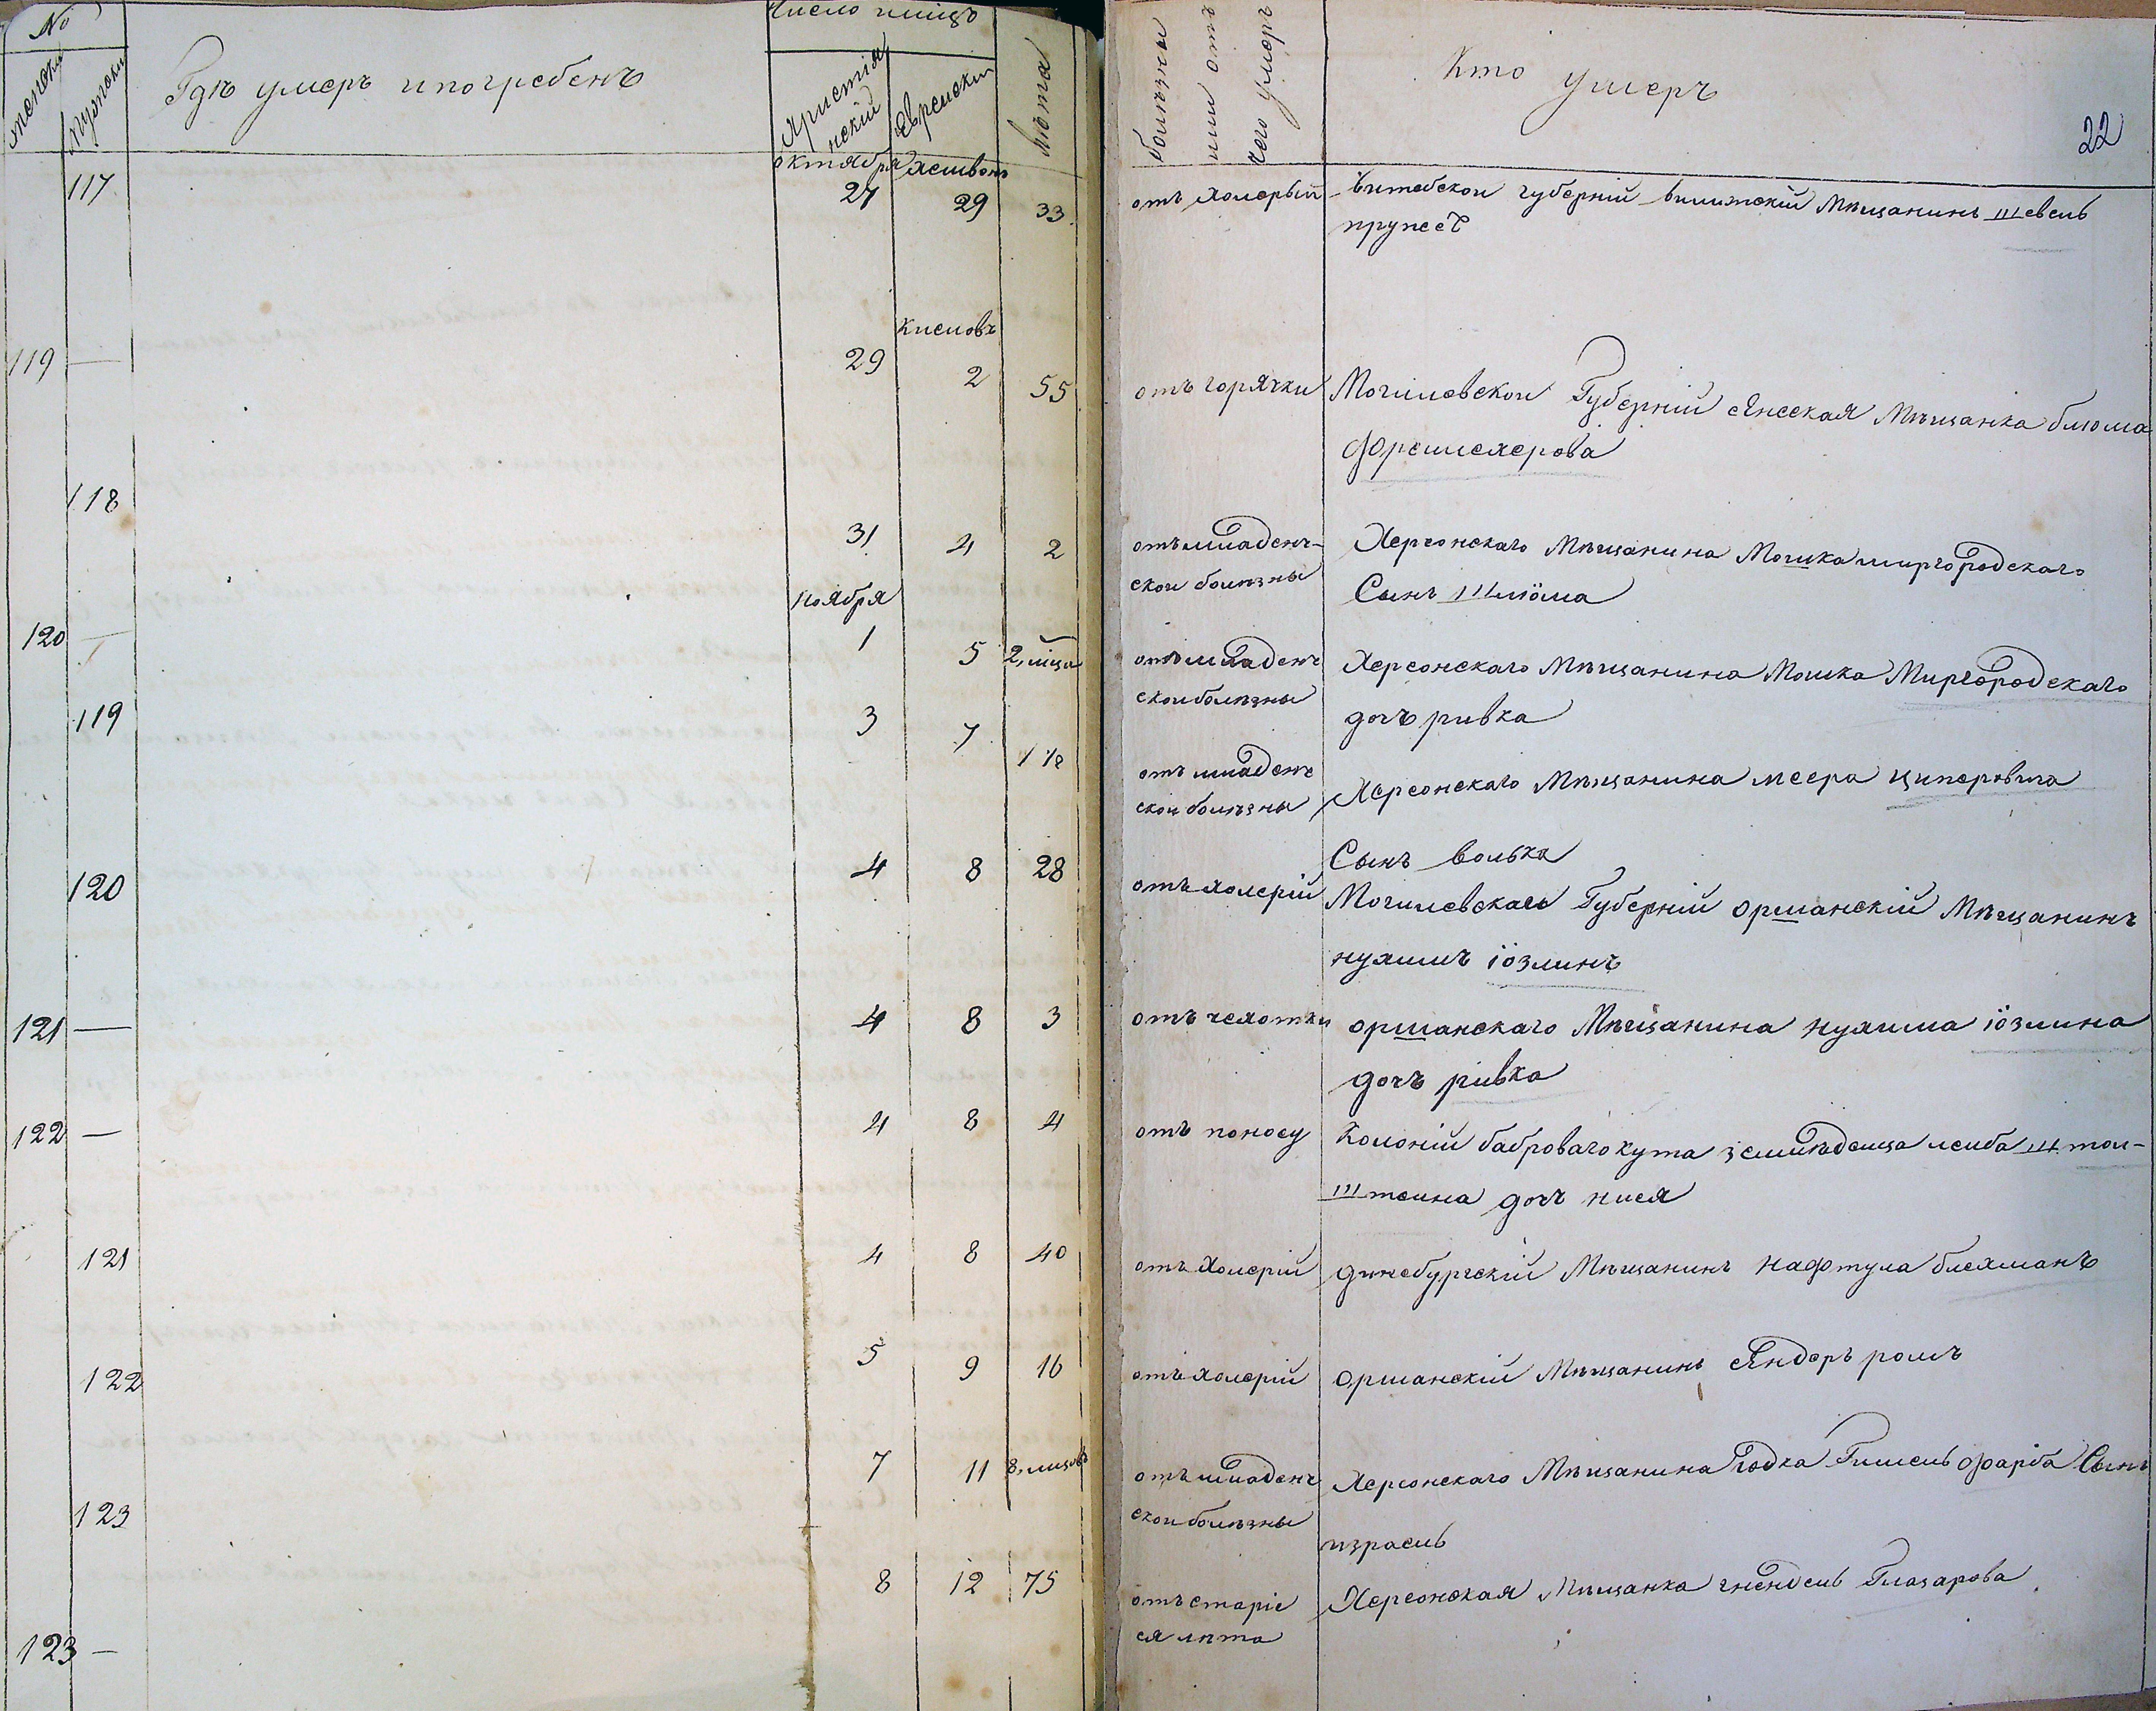 No
Число
женски
мужски
Гдѣ умеръ и погребенъ
Христіанскій
Еврейски
Лѣта
болѣзны
или отъ
чего умеръ
Кто умеръ
22
октября хешвонъ
117 27 29 33
отъ холерый Витебской губерній вилижскій мѣщанинъ Шевель
Кислевъ
119 — 29 2 55
отъ горячки Могилевской Губерній сянская мѣщанка блюма
118 31 4 2
отъ младенч-
ской болѣзны
Херсонскаго мѣщанина Мошка миргородскаго
Сынъ Шлиома
Ноября
120 — 1 5 2
отъ младенч
ской болѣзны
Херсонскаго мѣщанина Мошка Миргородскаго
дочъ ривка
119 3 7 1 1/2
отъ младенч
ской болѣзны
Херсонскаго мѣщанина меера циперовича
Сынъ волька
120 4 8 28
отъ холерій Могилевскаго Губерній оршанскій мѣщанинъ
нухимъ іозлинъ
121 — 4 8 3
отъ чехотки оршанскаго мѣщанина нухима іозлина
дочъ ривка
122 — 4 8 4
отъ поносу Колоній баброваго кута земледелца лейба штол-
штеина дочъ нися
121 4 8 40
отъ холерій динебургскій мѣщанинъ нафтула блехманъ
122 5 9 16
отъ холерій оршанскій мѣщанинъ сяндеръ
123 7 11 8
отъ младенч
ской болѣзны
Херсонскаго мѣщанина Фарба Сынъ
израель
123 — 8 12 75
отъ старіе
ся лѣта
Херсонская мѣщанка гнендель Глазарова